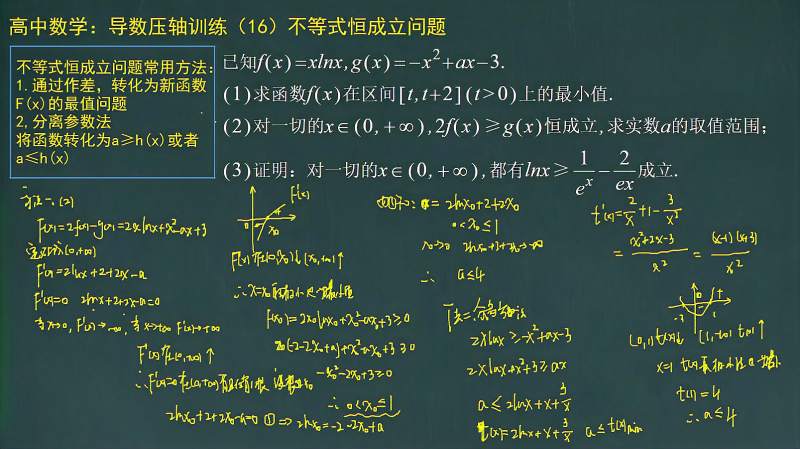 高中数学：导数压轴训练（16）不等式恒成立问题
不等式恒成立问题常用方法：
1.通过作差，转化为新函数
F(x)的最值问题
2,分离参数法
将函数转化为a≥h(x)或者
a≤h(x)
已知f(x)=xlnx,g(x)=-x²+ax-3.
(1)求函数f(x)在区间[t,t+2](t>0)上的最小值.
(2)对一切的x∈(0,+∞),2f(x)≥g(x)恒成立,求实数a的取值范围;
(3)证明：对一切的x∈(0,+∞),都有lnx≥1/e^x-2/ex成立.
方法一.(2)
F(x)=2f(x)-g(x)=2xlnx+x²-ax+3
定义域(0,+∞)
F'(x)=2lnx+2+2x-a
F'(x)=0 2lnx+2+2x-a=0
当x→0, F'(x)→-∞, 当x→+∞ F'(x)→+∞
F'(x)在(0,+∞)↑
2lnx₀+2+2x₀-a=0 ① => 2lnx₀=-2-2x₀+a
F'(x)
F(x)在(0,x₀)↓ (x₀,+∞)↑
F(x₀)=2x₀lnx₀+x₀²-ax₀+3≥0
x₀(-2-2x₀+a)+x₀²-ax₀+3≥0
-x₀²-2x₀+3≥0
∴ 0<x₀≤1
a=2lnx₀+2+2x₀
0<x₀≤1
∴ a≤4
2xlnx≥-x²+ax-3
2xlnx+x²+3≥ax
a≤2lnx+x+3/x
t(x)=2lnx+x+3/x a≤t(x)min
t'(x)=2/x+1-3/x²
=(x²+2x-3)/x²=(x-1)(x+3)/x²
-3 1
(0,1)t(x)↓ (1,+∞)t(x)↑
t(1)=4
∴ a≤4